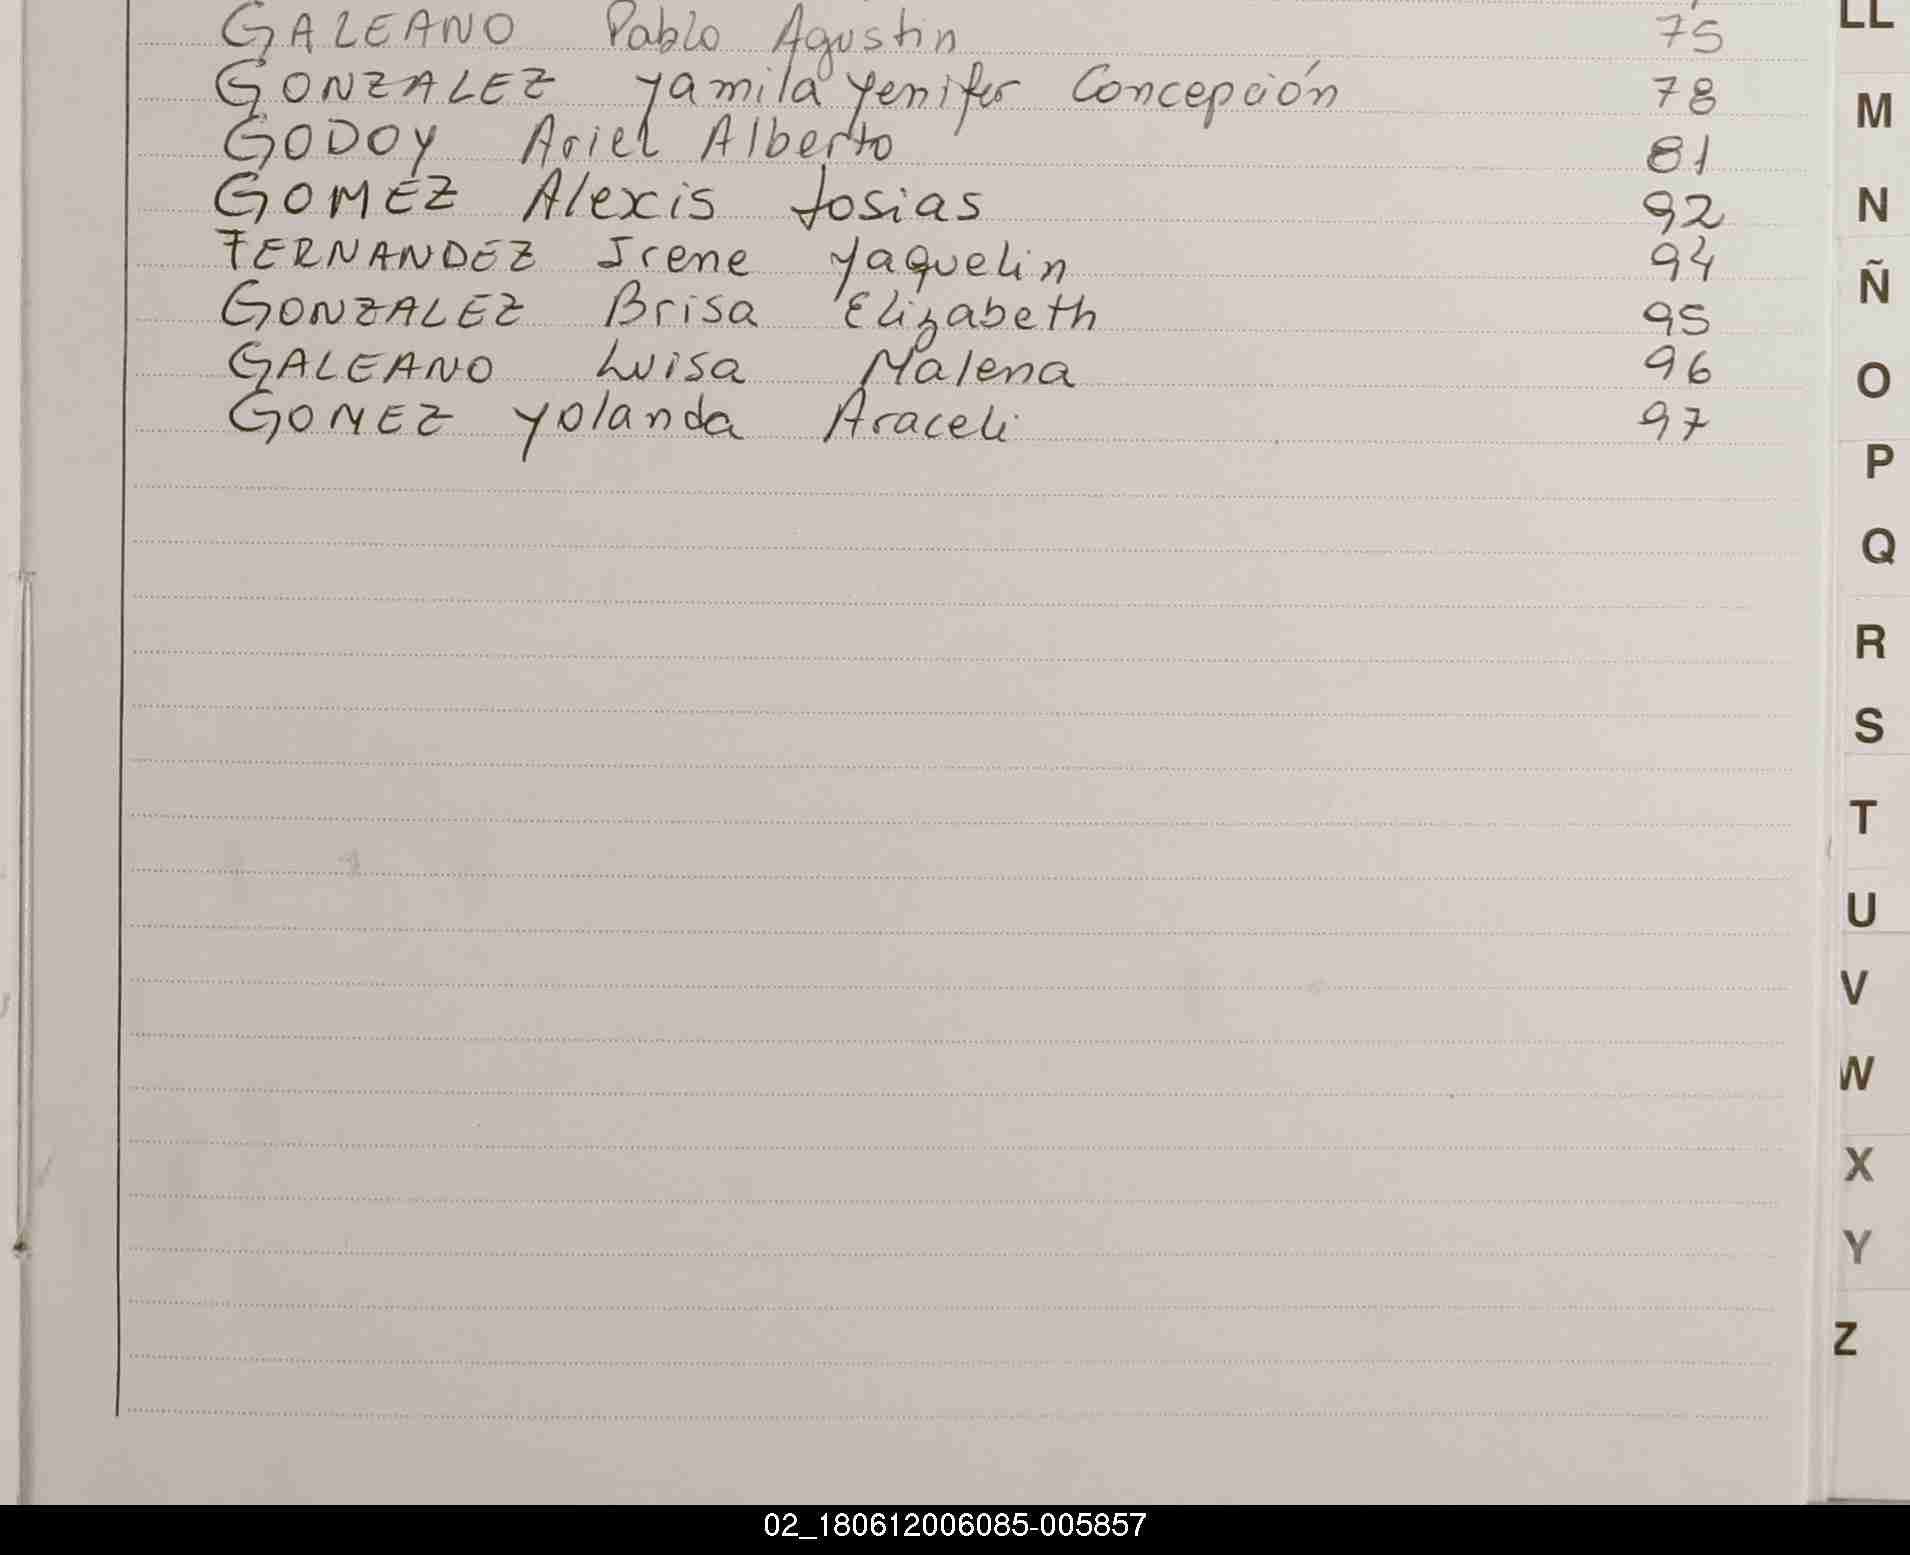 GALEANO Pablo Agustin 75
GONZALEZ Yamila Yenifer Concepción 78
GODOY Ariel Alberto 81
GOMEZ Alexis Josias 92
FERNANDEZ Irene Yaquelin 94
GONZALEZ Brisa Elizabeth 95
GALEANO Luisa Malena 96
GOMEZ Yolanda Araceli 97
LL
M
N
Ñ
O
P
Q
R
S
T
U
V
W
X
Y
Z
02_180612006085-005857